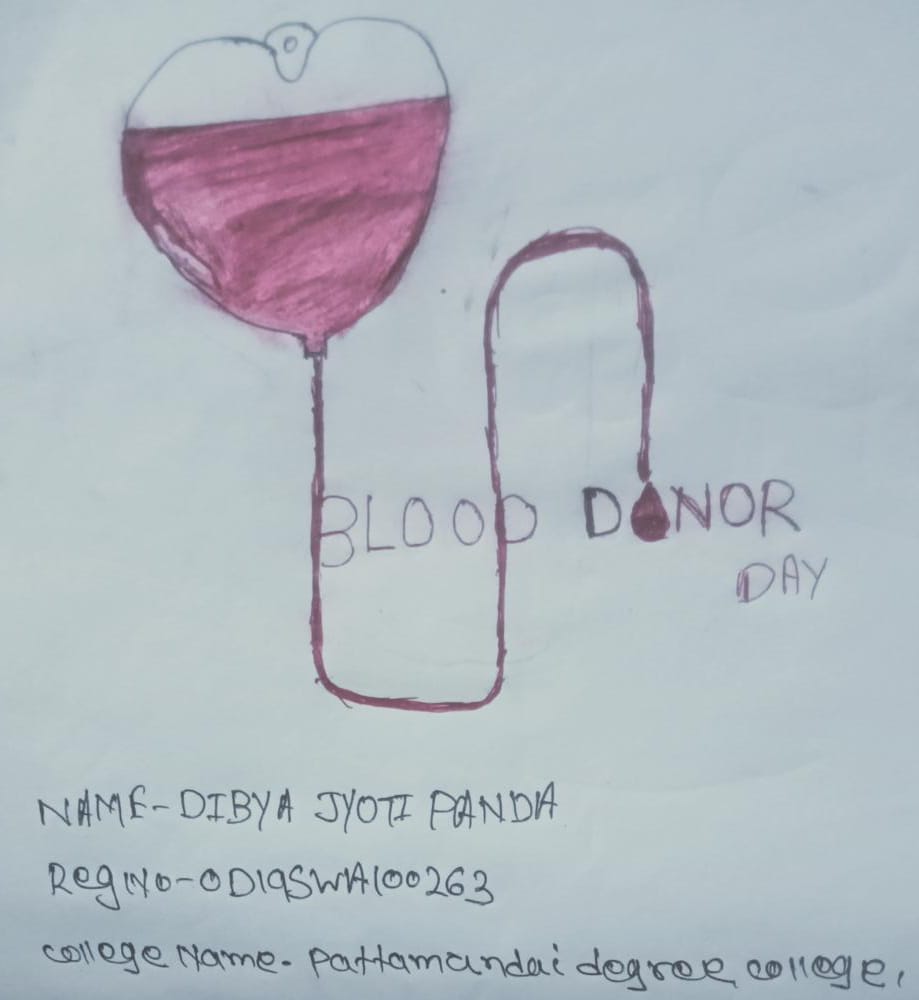 BLOOD DONOR
DAY
NAME-DIBYA JYOTI PANDA
Reg NO-OD19SWA100263
college Name. pattamundai degree college,